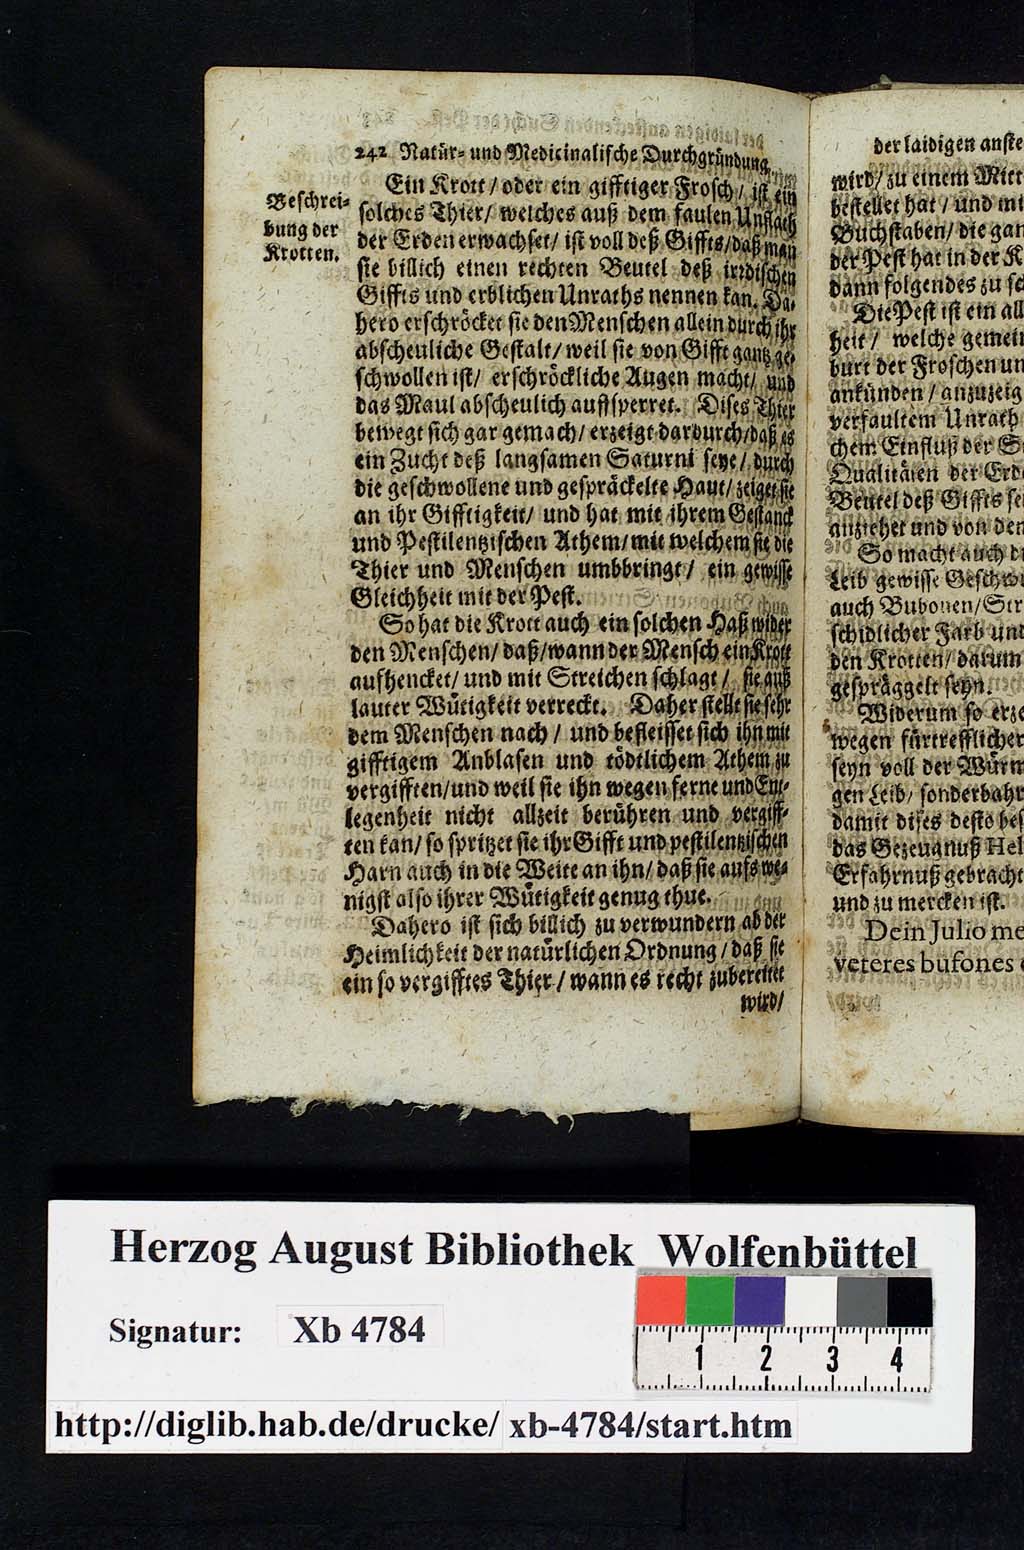 242 Natür- und Medicinalische Durchgründung,
Beschrei-
bung der
Krotten.
Ein Krott / oder ein gifftiger Frosch / ist ein
solches Thier / welches auß dem faulen Unflath
der Erden erwachset / ist voll deß Giffts / daß man
sie billich einen rechten Beutel deß irrdischen
Giffts und erblichen Unraths nennen kan. Da-
hero erschröcket sie den Menschen allein durch ihr
abscheuliche Gestalt / weil sie von Gifft gantz ge-
schwollen ist / erschröckliche Augen macht / und
das Maul abscheulich auffsperret. Dises Thier
bewegt sich gar gemach / erzeigt dardurch / daß es
ein Zucht deß langsamen Saturni seye / durch
die geschwollene und gespräckelte Haut / zeiget sie
an ihr Gifftigkeit / und hat mit ihrem Gestanck
und Pestilentzischen Athem / mit welchem sie die
Thier und Menschen umbbringt / ein gewisse
Gleichheit mit der Pest.
So hat die Krott auch ein solchen Haß wider
den Menschen / daß / wann der Mensch ein Krott
aufhencket / und mit Streichen schlagt / sie auß
lauter Wütigkeit verreckt. Daher stellt sie sehr
dem Menschen nach / und befleisset sich ihn mit
gifftigem Anblasen und tödtlichem Athem zu
vergifften / und weil sie ihn wegen ferne und Ent-
legenheit nicht allzeit berühren und vergiff-
ten kan / so spritzet sie ihr Gifft und pestilentzischen
Harn auch in die Weite an ihn / daß sie aufs we-
nigst also ihrer Wütigkeit genug thue.
Dahero ist sich billich zu verwundern ab der
Heimlichkeit der natürlichen Ordnung / daß sie
ein so vergifftes Thier / wann es recht zubereitet
wird /
der laidigen anste
wird / zu einem Mitt
bestellet hat / und mi
Buchstaben / die gan
der Pest hat in der K
dann folgendes zu
Die Pest ist ein all
heit / welche gemein
burt der Froschen un
ankünden / anzuzeig
verfaultem Unrath
chem Einfluß der
Qualitäten der Erd
Beutel deß Giffts
anziehet und von den
So macht auch
Leib gewisse
auch Bubonen / Str
schidlicher Farb und
den Krotten / darum
gespräggelt seyn.
Widerum so erze
wegen fürtrefflicher
seyn voll der Würm
gen Leib / sonderbahr
damit dises desto bes
das Gezeugnuß Hel
Erfahrnuß gebracht
und zu mercken ist.
Dein Julio me
veteres bufones
Herzog August Bibliothek Wolfenbüttel
Signatur: Xb 4784
1 2 3 4
http://diglib.hab.de/drucke/ xb-4784/start.htm